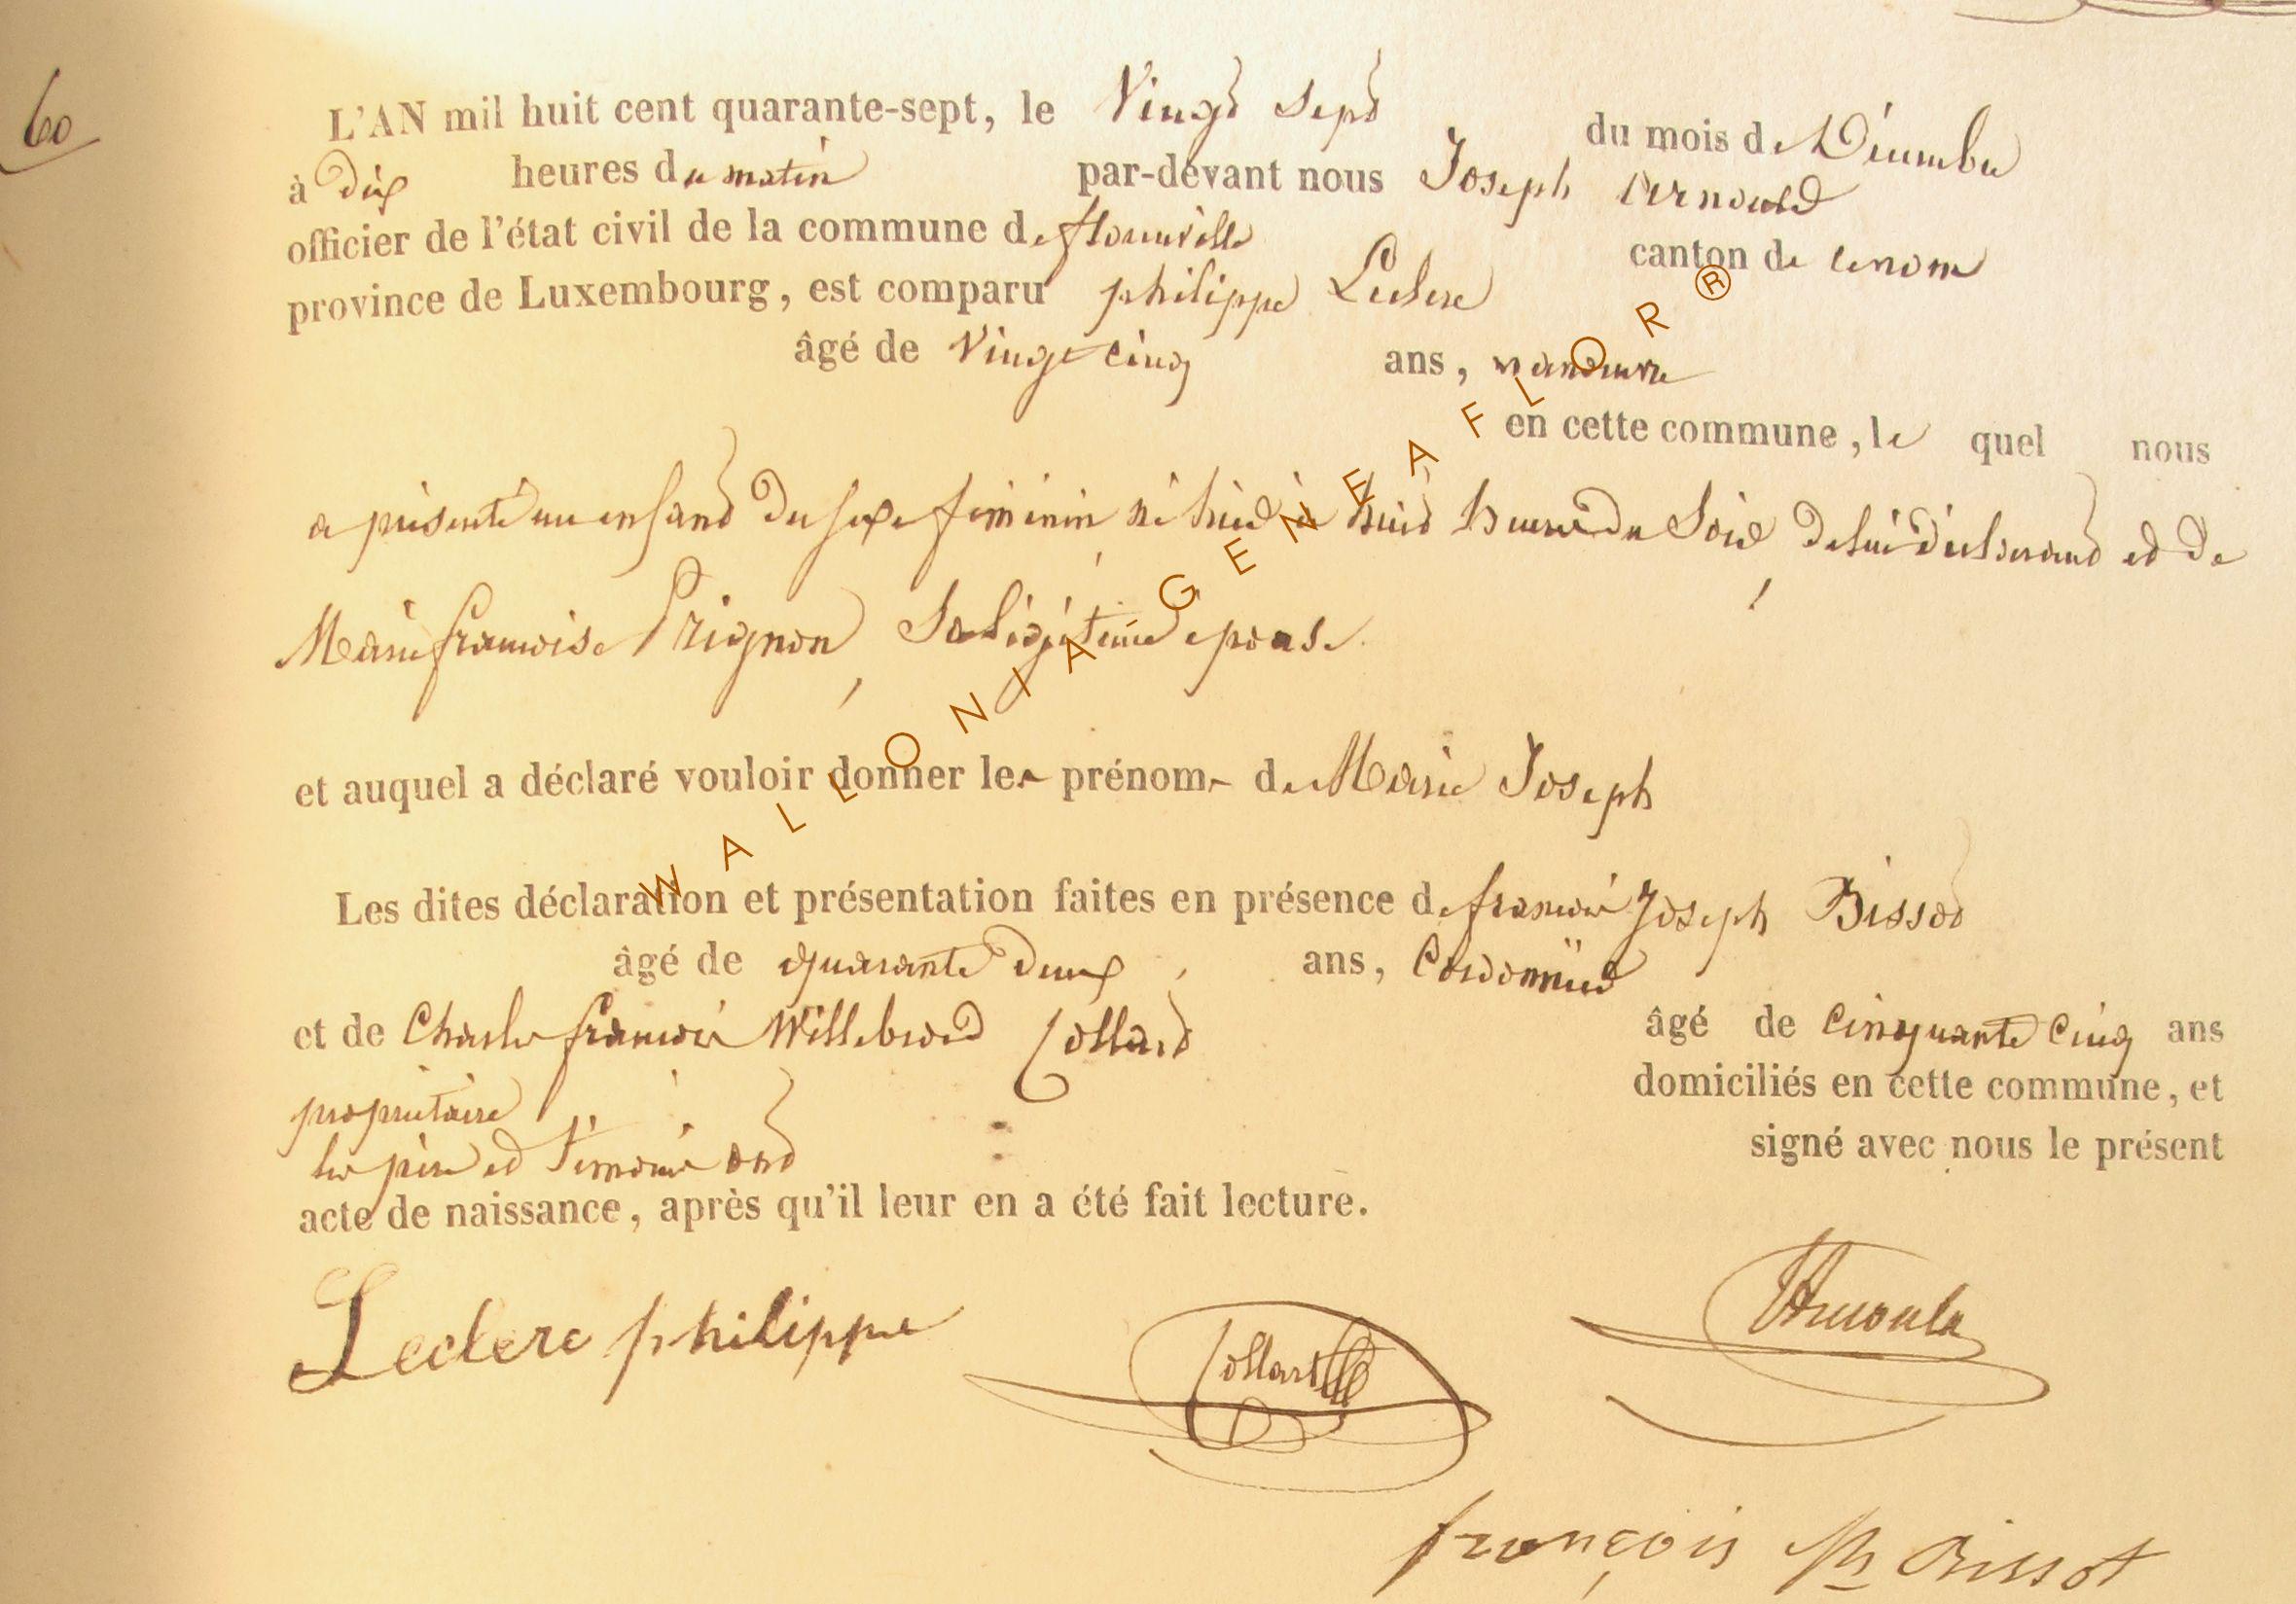 60
L'AN mil huit cent quarante-sept, le Vingt sept du mois de Décembre
à dix heures du matin par-devant nous Joseph Arnould
officier de l'état civil de la commune de florenville canton de ce nom
province de Luxembourg, est comparu philippe Leclere
âgé de Vingt cinq ans, manœuvre
en cette commune, le quel nous
a présenté un enfant du sexe féminin né hier à huit heures du Soir, de lui déclarant et de
Marie françoise Prignon, Sa légitime epouse
et auquel a déclaré vouloir donner les prénoms de Marie Joseph
Les dites déclaration et présentation faites en présence de françois Joseph Bissot
âgé de quarante deux ans, Cordonnier
et de Charles françois Willebrord Collard âgé de Cinquante Cinq ans
propriétaire domiciliés en cette commune, et
les père et témoins ont signé avec nous le présent
acte de naissance, après qu'il leur en a été fait lecture.
Leclere philippe Collard Arnould
françois Jph Bissot
WALLONIA GENEAFLOR®